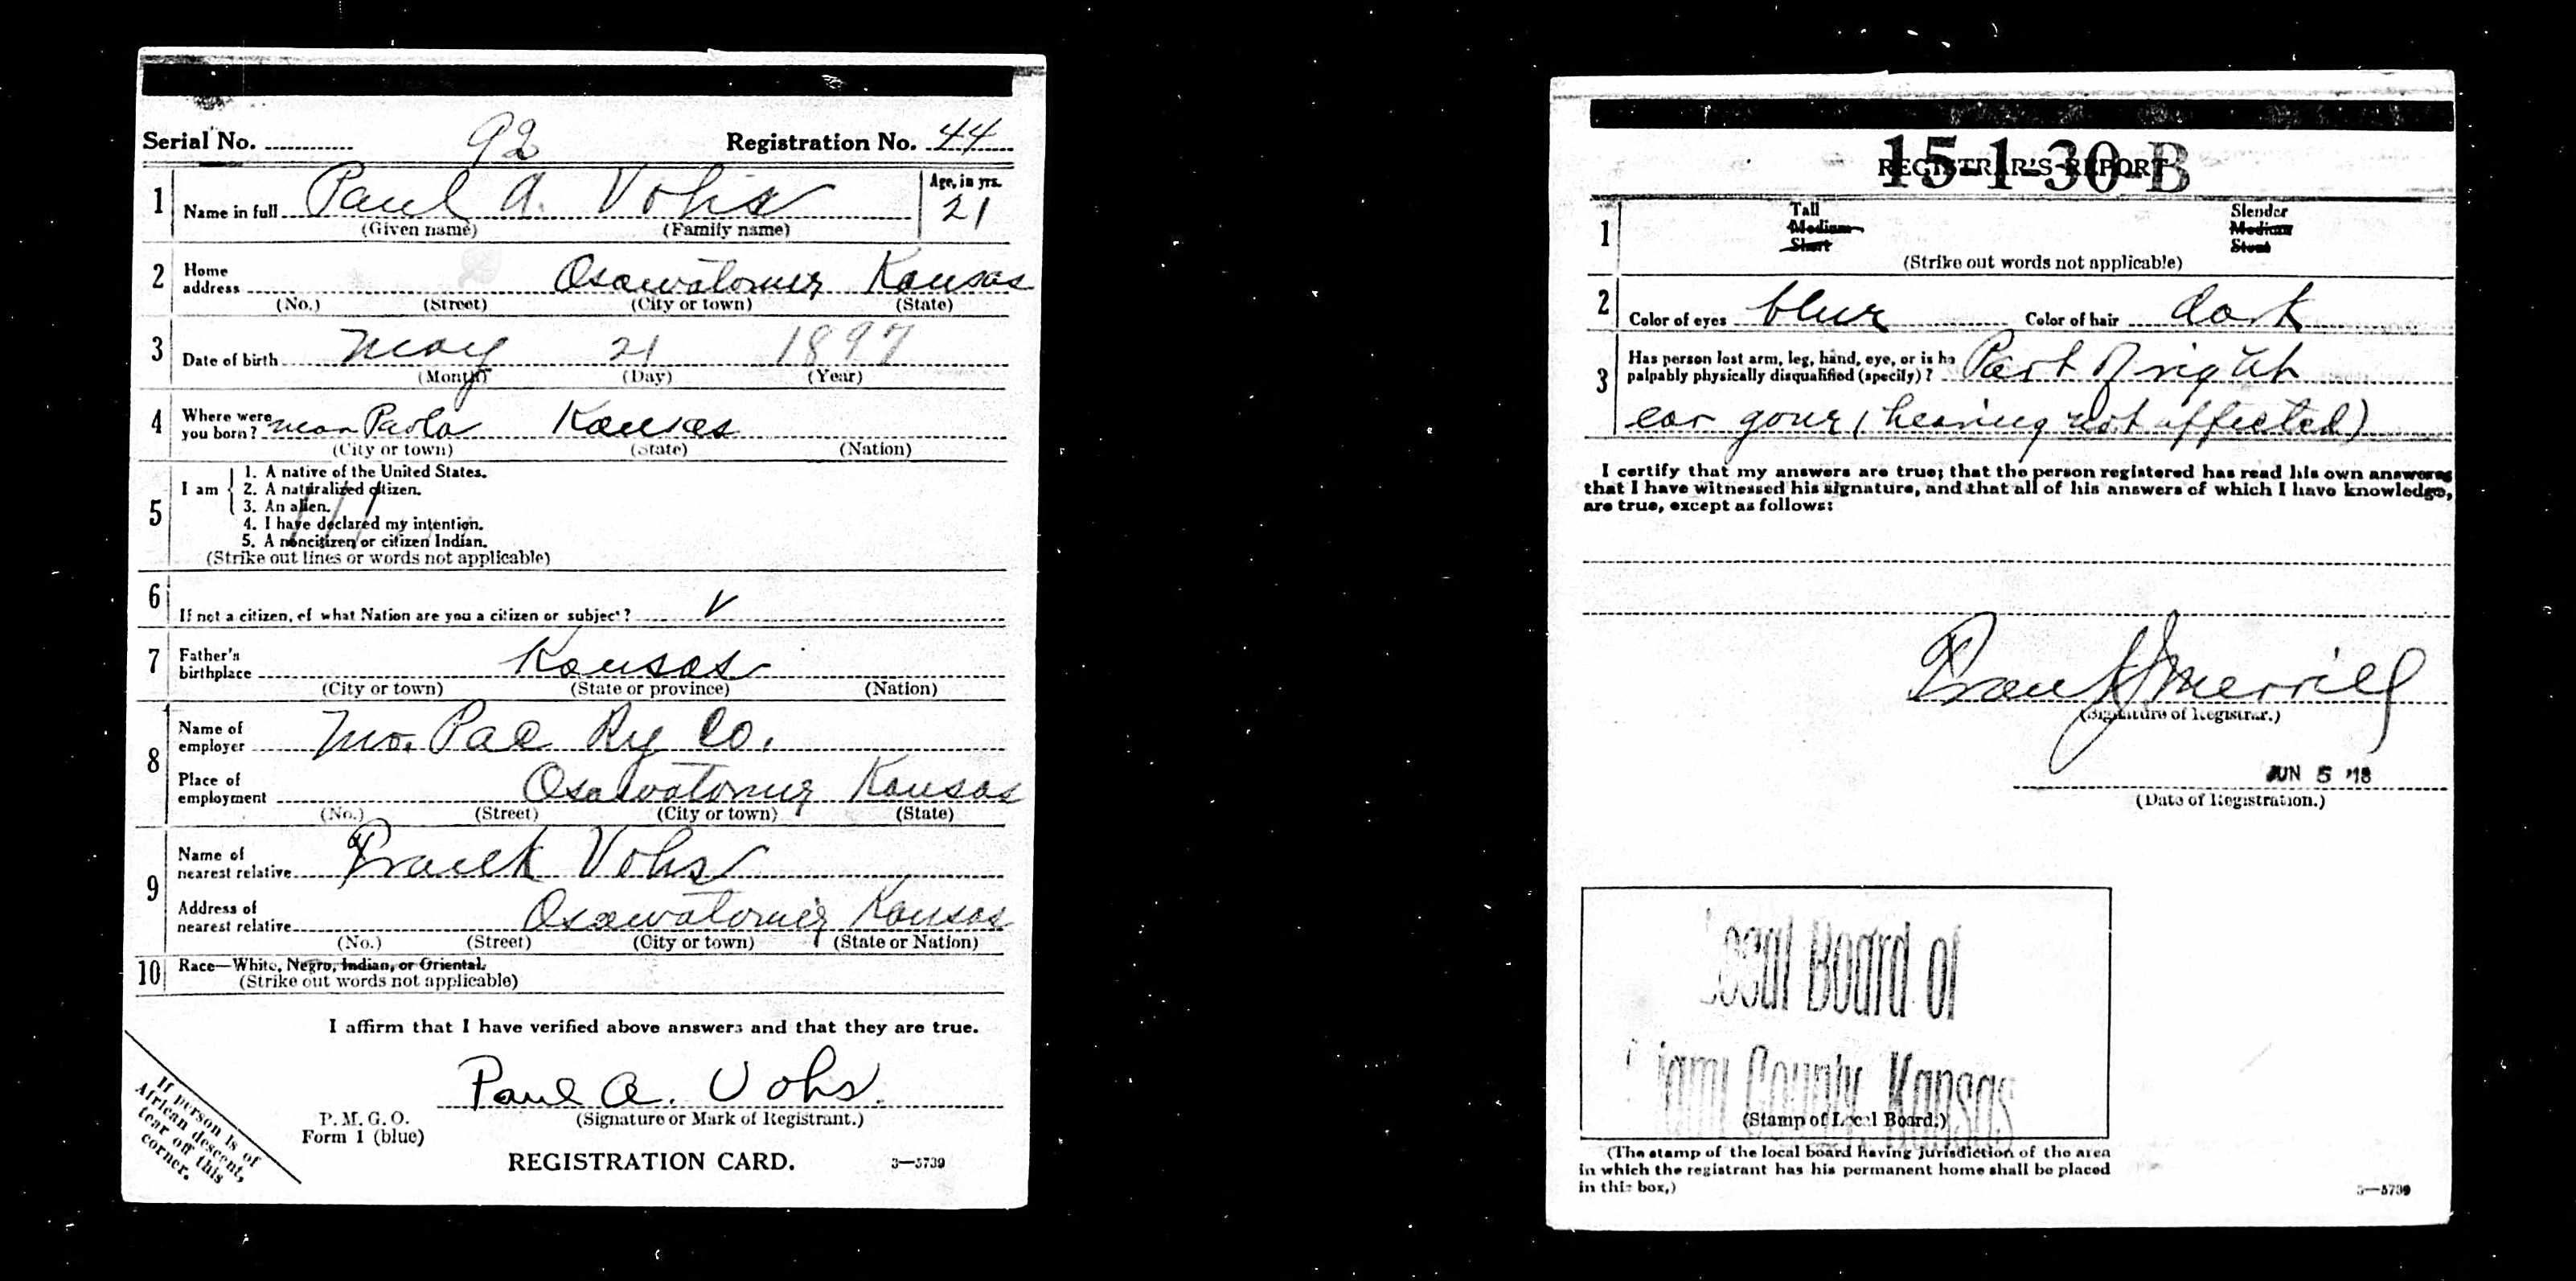 Serial No. 92 Registration No. 44
1 Name in full Paul A. Vohs Age, in yrs. 21
(Given name) (Family name)
2 Home address Osawatomie Kansas
(No.) (Street) (City or town) (State)
3 Date of birth May 21 1897
(Month) (Day) (Year)
4 Where were you born? near Paola Kansas
(City or town) (State) (Nation)
5 I am
1. A native of the United States.
2. A naturalized citizen.
3. An alien.
4. I have declared my intention.
5. A noncitizen or citizen Indian.
(Strike out lines or words not applicable)
6 If not a citizen, of what Nation are you a citizen or subject?
7 Father's birthplace Kansas
(City or town) (State or province) (Nation)
8 Name of employer Mo. Pac Ry Co.
Place of employment Osawatomie Kansas
(No.) (Street) (City or town) (State)
9 Name of nearest relative Frank Vohs
Address of nearest relative Osawatomie Kansas
(No.) (Street) (City or town) (State or Nation)
10 Race—White, Negro, Indian, or Oriental.
(Strike out words not applicable)
I affirm that I have verified above answers and that they are true.
Paul A. Vohs.
(Signature or Mark of Registrant.)
P. M. G. O.
Form 1 (blue)
REGISTRATION CARD. 3—5739
If person is
African descent,
tear off this
corner.
15-1-30-B
REGISTRAR'S REPORT
1 Tall Slender
Medium Medium
Short Stout
(Strike out words not applicable)
2 Color of eyes blue Color of hair dark
3 Has person lost arm, leg, hand, eye, or is he
palpably physically disqualified (specify)? Part of right
ear gone (hearing not affected)
I certify that my answers are true; that the person registered has read his own answers
that I have witnessed his signature, and that all of his answers of which I have knowledge,
are true, except as follows:
Frank J Merrill
(Signature of Registrar.)
JUN 5 '18
(Date of Registration.)
Local Board of
Miami County, Kansas
(Stamp of Local Board.)
(The stamp of the local board having jurisdiction of the area
in which the registrant has his permanent home shall be placed
in this box.)
3—5739